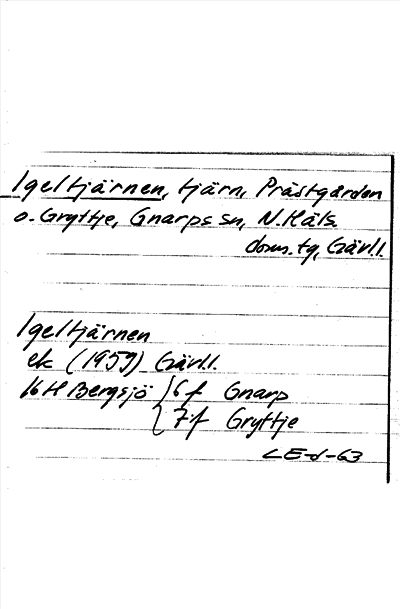 Igeltjärnen, tjärn, Prästgården
o. Gryttje, Gnarps sn, N. Häls.
dom. tg, Gävl.l.
Igeltjärnen
ek (1959) Gävl.l.
16H Bergsjö 6f Gnarp
7f Gryttje